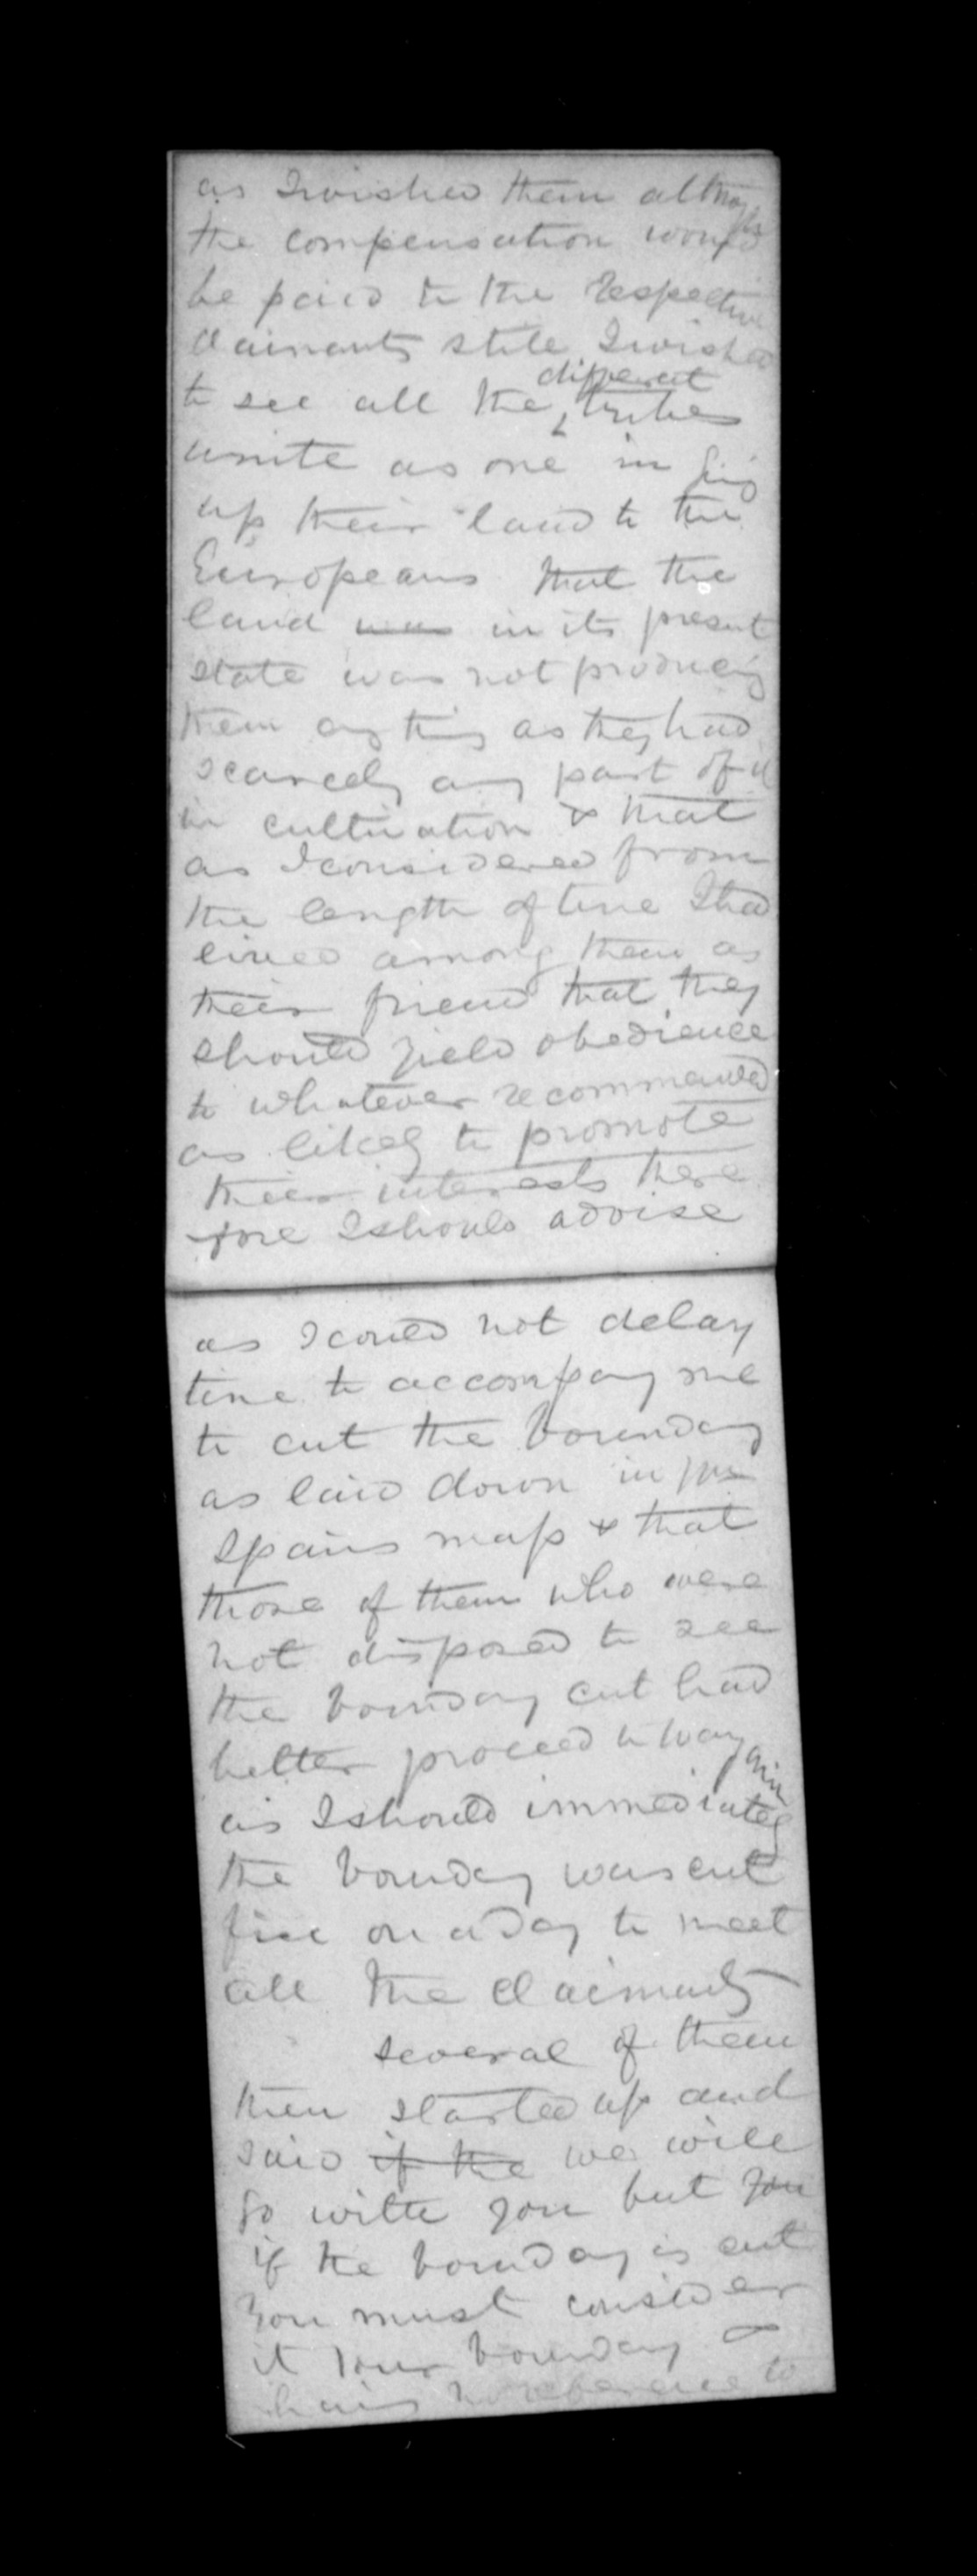 as I wished them although
the compensation would
be paid to the respective
claimants still I wished
to see all the different tribes
unite as one in
up their land to the
Europeans that the
land was in its present
state was not producing
them any thing as they had
scarcely any part of it
in cultivation & that
as I considered from
the length of time I had
lived among them as
their friend that they
should yield obedience
to whatever recommended
as likely to promote
their interests there
fore I should advise
as I could not delay
time to accompany me
to cut the boundary
as laid down in
Spains map & that
those of them who were
not disposed to see
the boundary cut had
better proceed to
as I should immediately
the boundary was cut
fix on a day to meet
all the claimants
several of them
then started up and
said if the we will
go with you but you
if the boundary is cut
you must consider
it your boundary &
having no reference to